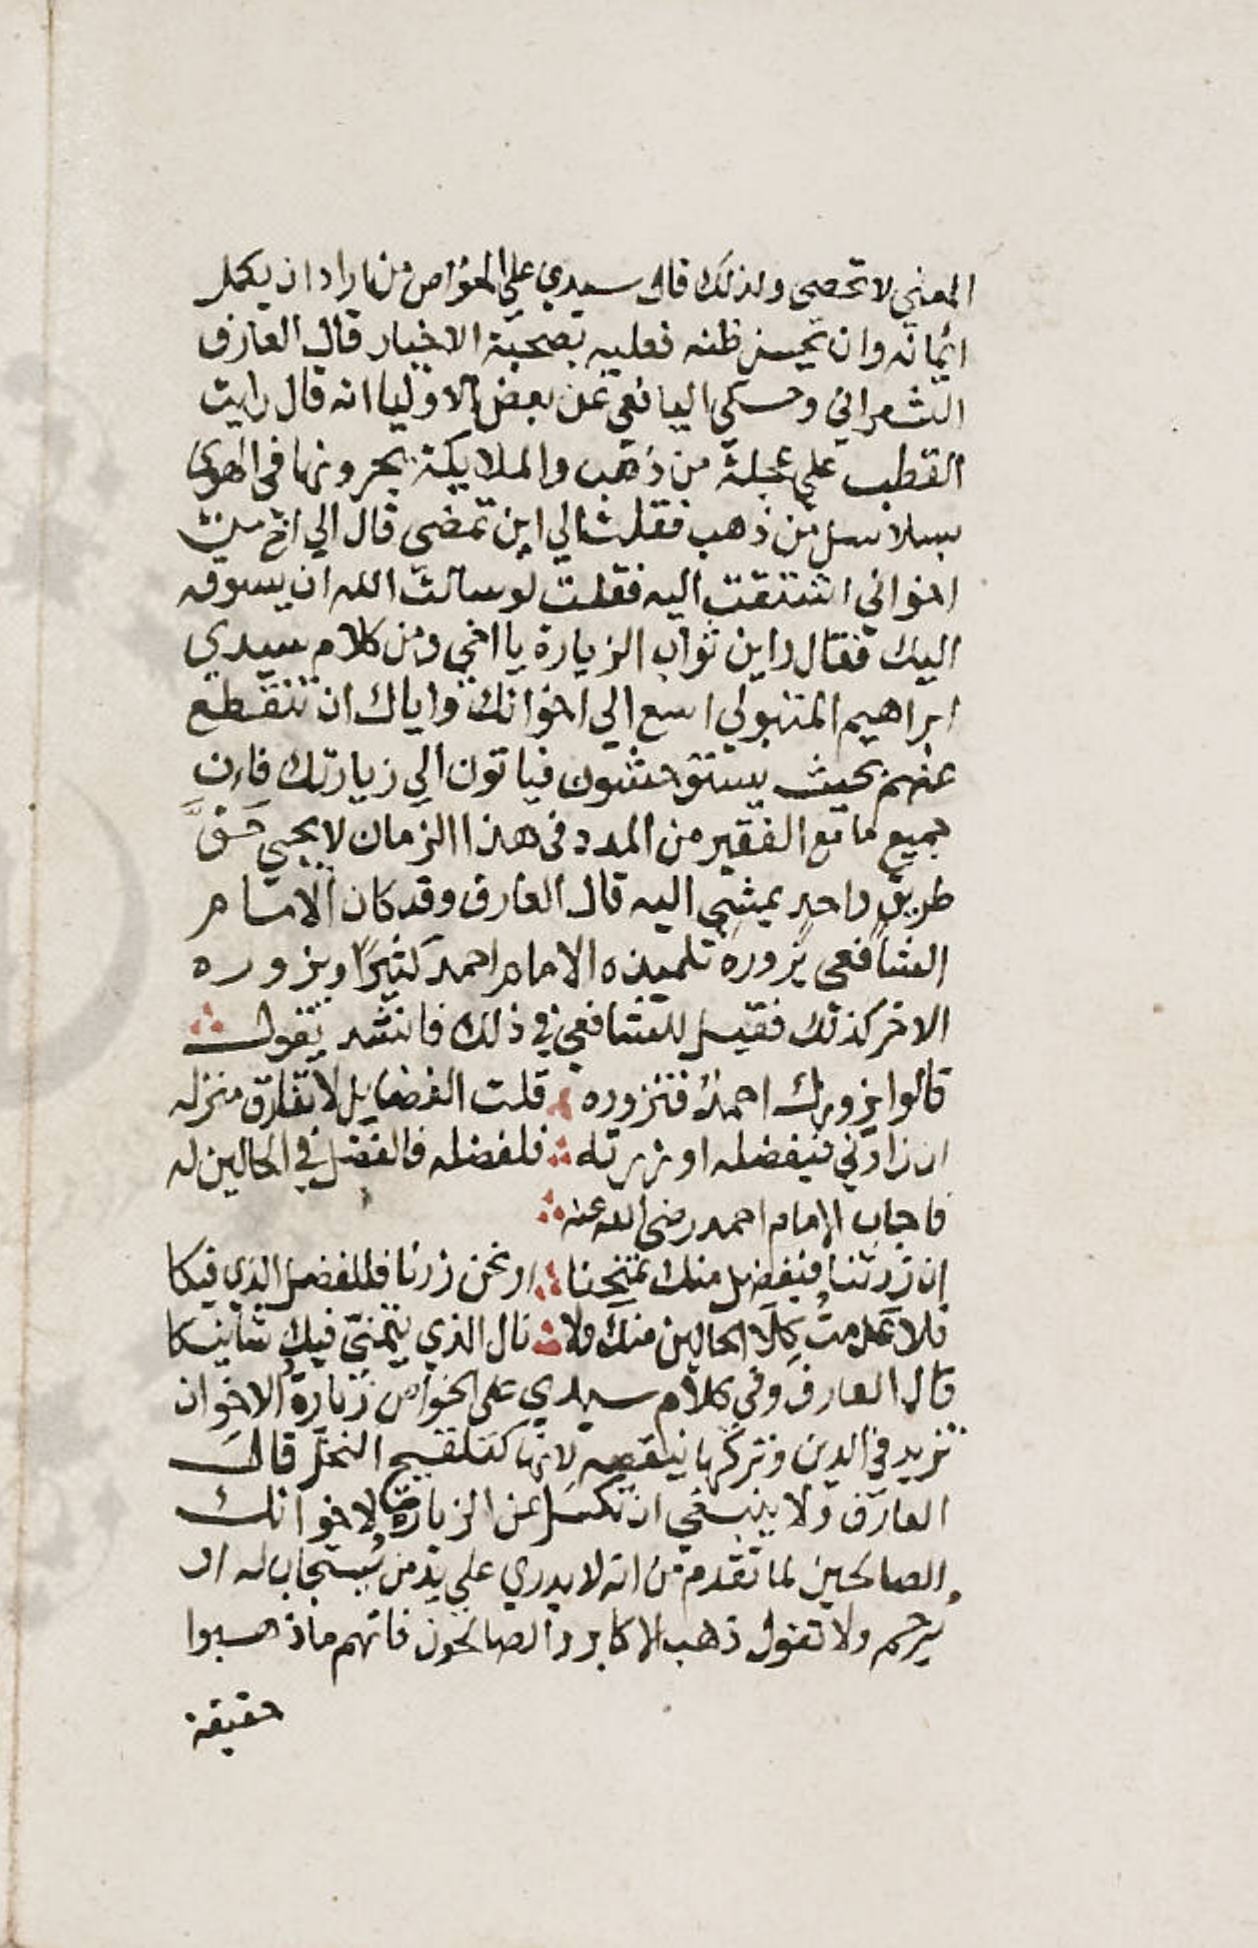 المعني لا تحصى ولذلك قال سيدي علي الخواص من اراد ان يكمل
ائمانه وان يحسن ظنه فعليه بصحبة الاخيار قال العارف
الشعراني وحكي اليافعي عن بعض الاوليا انه قال رايت
القطب علي عجلة من ذهب والملايكة يجرونها في الهوى
بسلاسل من ذهب فقلت الي اين تمضى قال الي اخ من
اخواني اشتقت اليه فقلت لو سالت الله ان يسوقه
اليك فقال واين ثواب الزيارة يا اخي ومن كلام سيدي
ابراهيم المتبولي اسع الي اخوانك واياك ان تنقطع
عنهم بحيث يستوحشون فياتون الي زيارتك فان
جميع ما مع الفقير من المدد في هذا الزمان لا يجي حق
طريق واحد يمشي اليه قال العارف وقد كان الامام
الشافعى يزوره تلميذه الامام احمد كثيرًا ويزوره
الاخر كذلك فقيل للشافعي في ذلك فانشد يقول
قالوا يزورك احمدٌ فتزوره قلت الفضايل لا تفارق منزله
ان زارني فبفضله او زرته فلفضله فالفضل في الحالين له
فاجاب الامام احمد رضي الله عنه
إن زرتنا فبفضل منك تمنحنا او نحن زرنا فللفضل الذي فيكا
فلا عدمتُ كِلَا الحالين منك ولا نال الذي يتمنيّ فيك شانيكا
قال العارف وفي كلام سيدي علي الخواص زيارة الاخوان
تزيد في الدين وتركها ينقصه لانها كتلقيح النخل قال
العارف ولا ينبغي ان تكسل عن الزيارة لاخوانك
الصالحين لما تقدم من انه لا يدري علي يد من يُستجاب له او
يُرحم ولا تقول ذهب الاكابر والصالحون فانهم ما ذهبوا
حقيقة